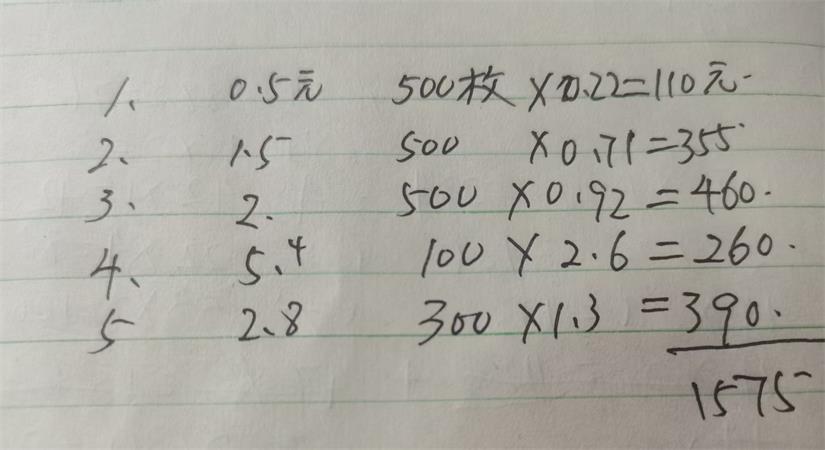 1、 0.5元 500枚 ×0.22=110元.
2、 1.5 500 ×0.71=355.
3、 2. 500 ×0.92=460.
4、 5.4 100 ×2.6=260.
5 2.8 300 ×1.3=390.
1575